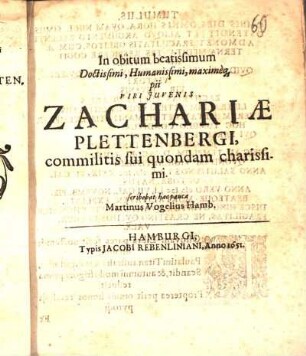 59
In obitum beatissimum
Doctissimi, Humanissimi, maximeq́;
pii
VIRI JUVENIS
ZACHARIÆ
PLETTENBERGI,
commilitis sui quondam charissi-
mi.
scribebat hæc pauca
Martinus Vogelius Hamb.
HAMBURGI,
Typis JACOBI REBENLINIANI, Anno 1651.
TEN.